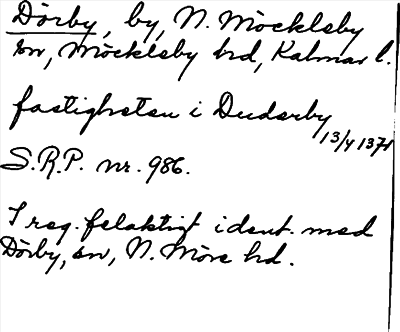 Dörby, by, N. Möcklsby
sn, Möcklsby hrd, Kalmar l.
fastigheten i Duderby
13/4 1371
S.R.P. nr. 986.
I reg. felaktigt ident. med
Dörby, sn, N. Möre hd.